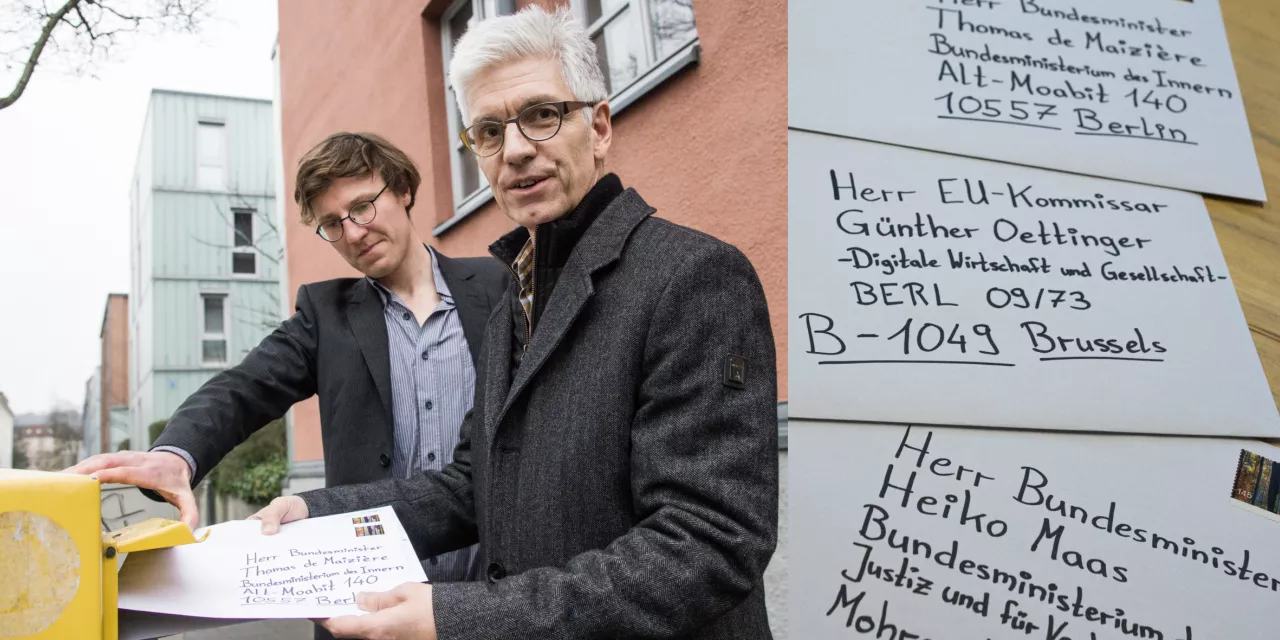 Herr Bundesminister
Thomas de Maizière
Bundesministerium des Innern
Alt-Moabit 140
10557 Berlin
Herr Bundesminister
Thomas de Maizière
Bundesministerium des Innern
Alt-Moabit 140
10557 Berlin
Herr EU-Kommissar
Günther Oettinger
-Digitale Wirtschaft und Gesellschaft-
BERL 09/73
B-1049 Brussels
145
Herr Bundesminister
Heiko Maas
Bundesministerium
Justiz und für